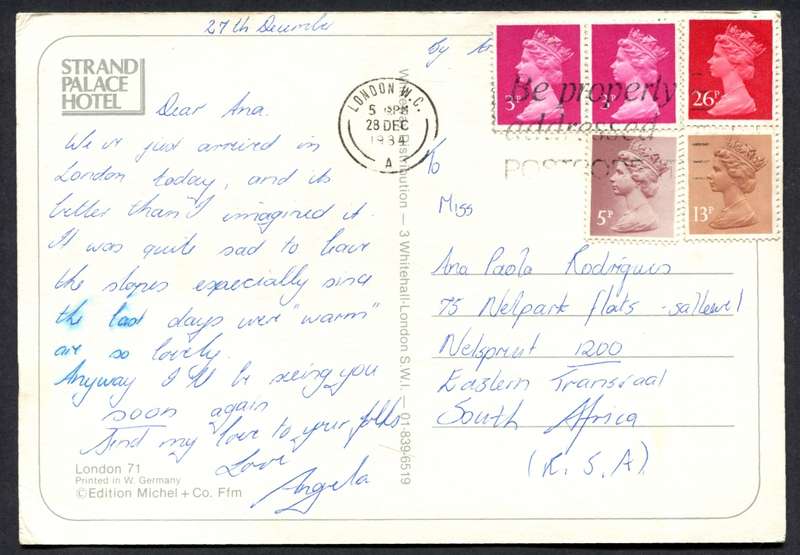 27th Decembe
By
STRAND
PALACE
HOTEL
Dear Ana.
We've just arrived in
London today, and its
better than I imagined it.
It was quite sad to leave
the slopes especially since
the last days were "warm"
are so lovely.
Anyway I'll be seeing you
soon again
Send my love to your folks
Love
Angela
London 71
Printed in W. Germany
©Edition Michel + Co. Ffm
Distribution — 3 Whitehall-London S.W.I. — 01-839-6519
LONDON W.C.
5 PM
28 DEC
1984
A
Be properly
addressed
POSTCODE
3P
26P
5P
13P
c/o
Miss
Ana Paola Rodrigues
75 Nelpark flats -
Nelspruit 1200
Eastern Transvaal
South Africa
(R.S.A)